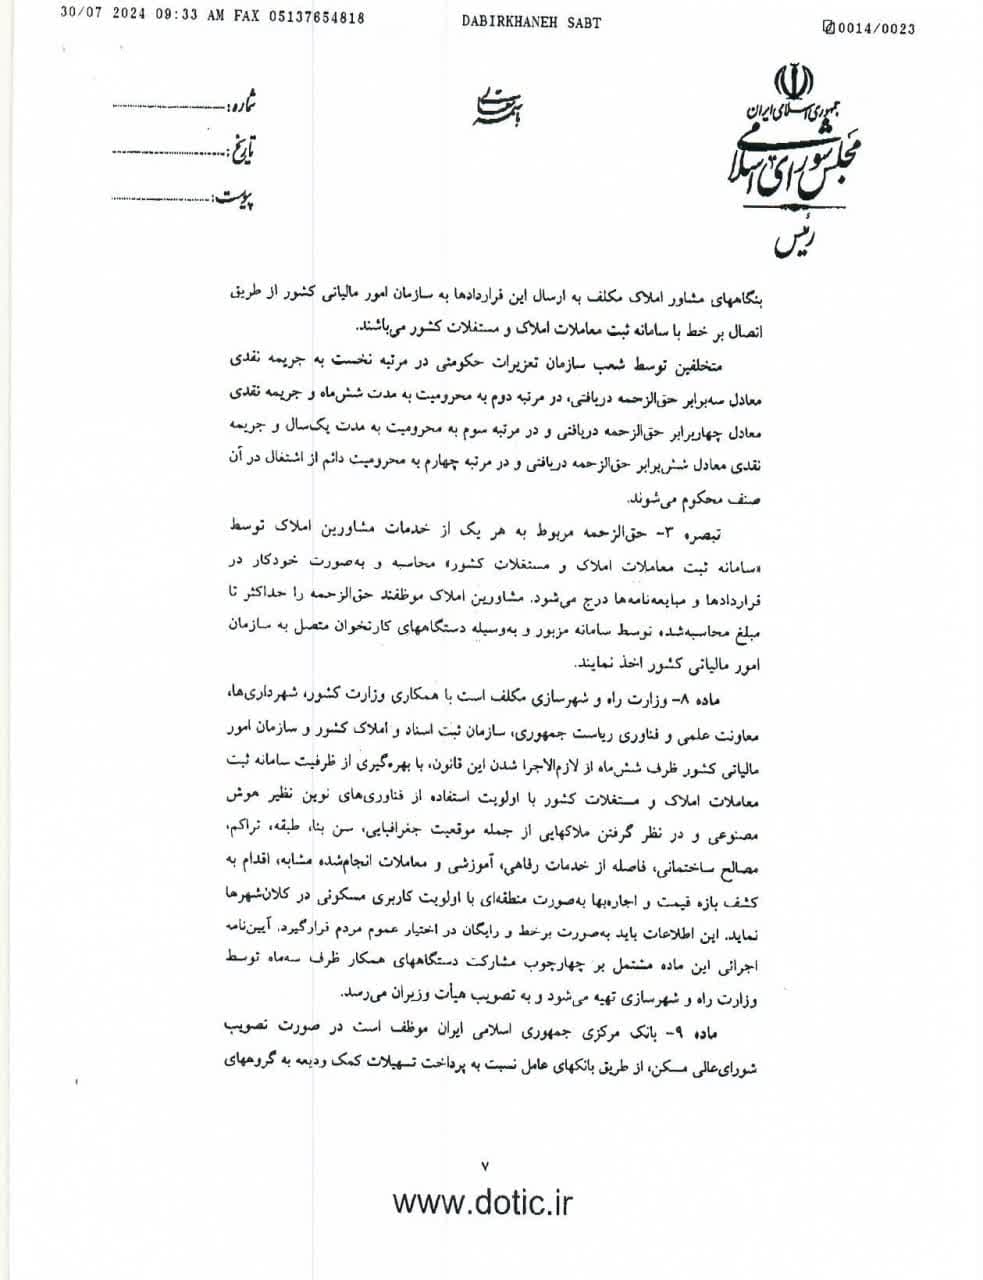 30/07 2024 09:33 AM FAX 05137654818
DABIRKHANEH SABT
0014/0023
جمهوری اسلامی ایران
مجلس شورای اسلامی
رئیس
باسمه تعالی
شماره:
تاریخ:
پیوست:
بنگاههای مشاور املاک مکلف به ارسال این قراردادها به سازمان امور مالیاتی کشور از طریق
اتصال بر خط با سامانه ثبت معاملات املاک و مستغلات کشور می‌باشند.
متخلفین توسط شعب سازمان تعزیرات حکومتی در مرتبه نخست به جریمه نقدی
معادل سه‌برابر حق‌الزحمه دریافتی، در مرتبه دوم به محرومیت به مدت شش‌ماه و جریمه نقدی
معادل چهاربرابر حق‌الزحمه دریافتی و در مرتبه سوم به محرومیت به مدت یک‌سال و جریمه
نقدی معادل شش‌برابر حق‌الزحمه دریافتی و در مرتبه چهارم به محرومیت دائم از اشتغال در آن
صنف محکوم می‌شوند.
تبصره ۳- حق‌الزحمه مربوط به هر یک از خدمات مشاورین املاک توسط
«سامانه ثبت معاملات املاک و مستغلات کشور» محاسبه و به‌صورت خودکار در
قراردادها و مبایعه‌نامه‌ها درج می‌شود. مشاورین املاک موظفند حق‌الزحمه را حداکثر تا
مبلغ محاسبه‌شده توسط سامانه مزبور و به‌وسیله دستگاههای کارتخوان متصل به سازمان
امور مالیاتی کشور اخذ نمایند.
ماده ۸- وزارت راه و شهرسازی مکلف است با همکاری وزارت کشور، شهرداری‌ها،
معاونت علمی و فناوری ریاست جمهوری، سازمان ثبت اسناد و املاک کشور و سازمان امور
مالیاتی کشور ظرف شش‌ماه از لازم‌الاجرا شدن این قانون، با بهره‌گیری از ظرفیت سامانه ثبت
معاملات املاک و مستغلات کشور با اولویت استفاده از فناوری‌های نوین نظیر هوش
مصنوعی و در نظر گرفتن ملاکهایی از جمله موقعیت جغرافیایی، سن بنا، طبقه، تراکم،
مصالح ساختمانی، فاصله از خدمات رفاهی، آموزشی و معاملات انجام‌شده مشابه، اقدام به
کشف بازه قیمت و اجاره‌بها به‌صورت منطقه‌ای با اولویت کاربری مسکونی در کلان‌شهرها
نماید. این اطلاعات باید به‌صورت برخط و رایگان در اختیار عموم مردم قرارگیرد. آیین‌نامه
اجرائی این ماده مشتمل بر چهارچوب مشارکت دستگاههای همکار ظرف سه‌ماه توسط
وزارت راه و شهرسازی تهیه می‌شود و به تصویب هیأت وزیران می‌رسد.
ماده ۹- بانک مرکزی جمهوری اسلامی ایران موظف است در صورت تصویب
شورای‌عالی مسکن، از طریق بانکهای عامل نسبت به پرداخت تسهیلات کمک ودیعه به گروههای
۷
www.dotic.ir